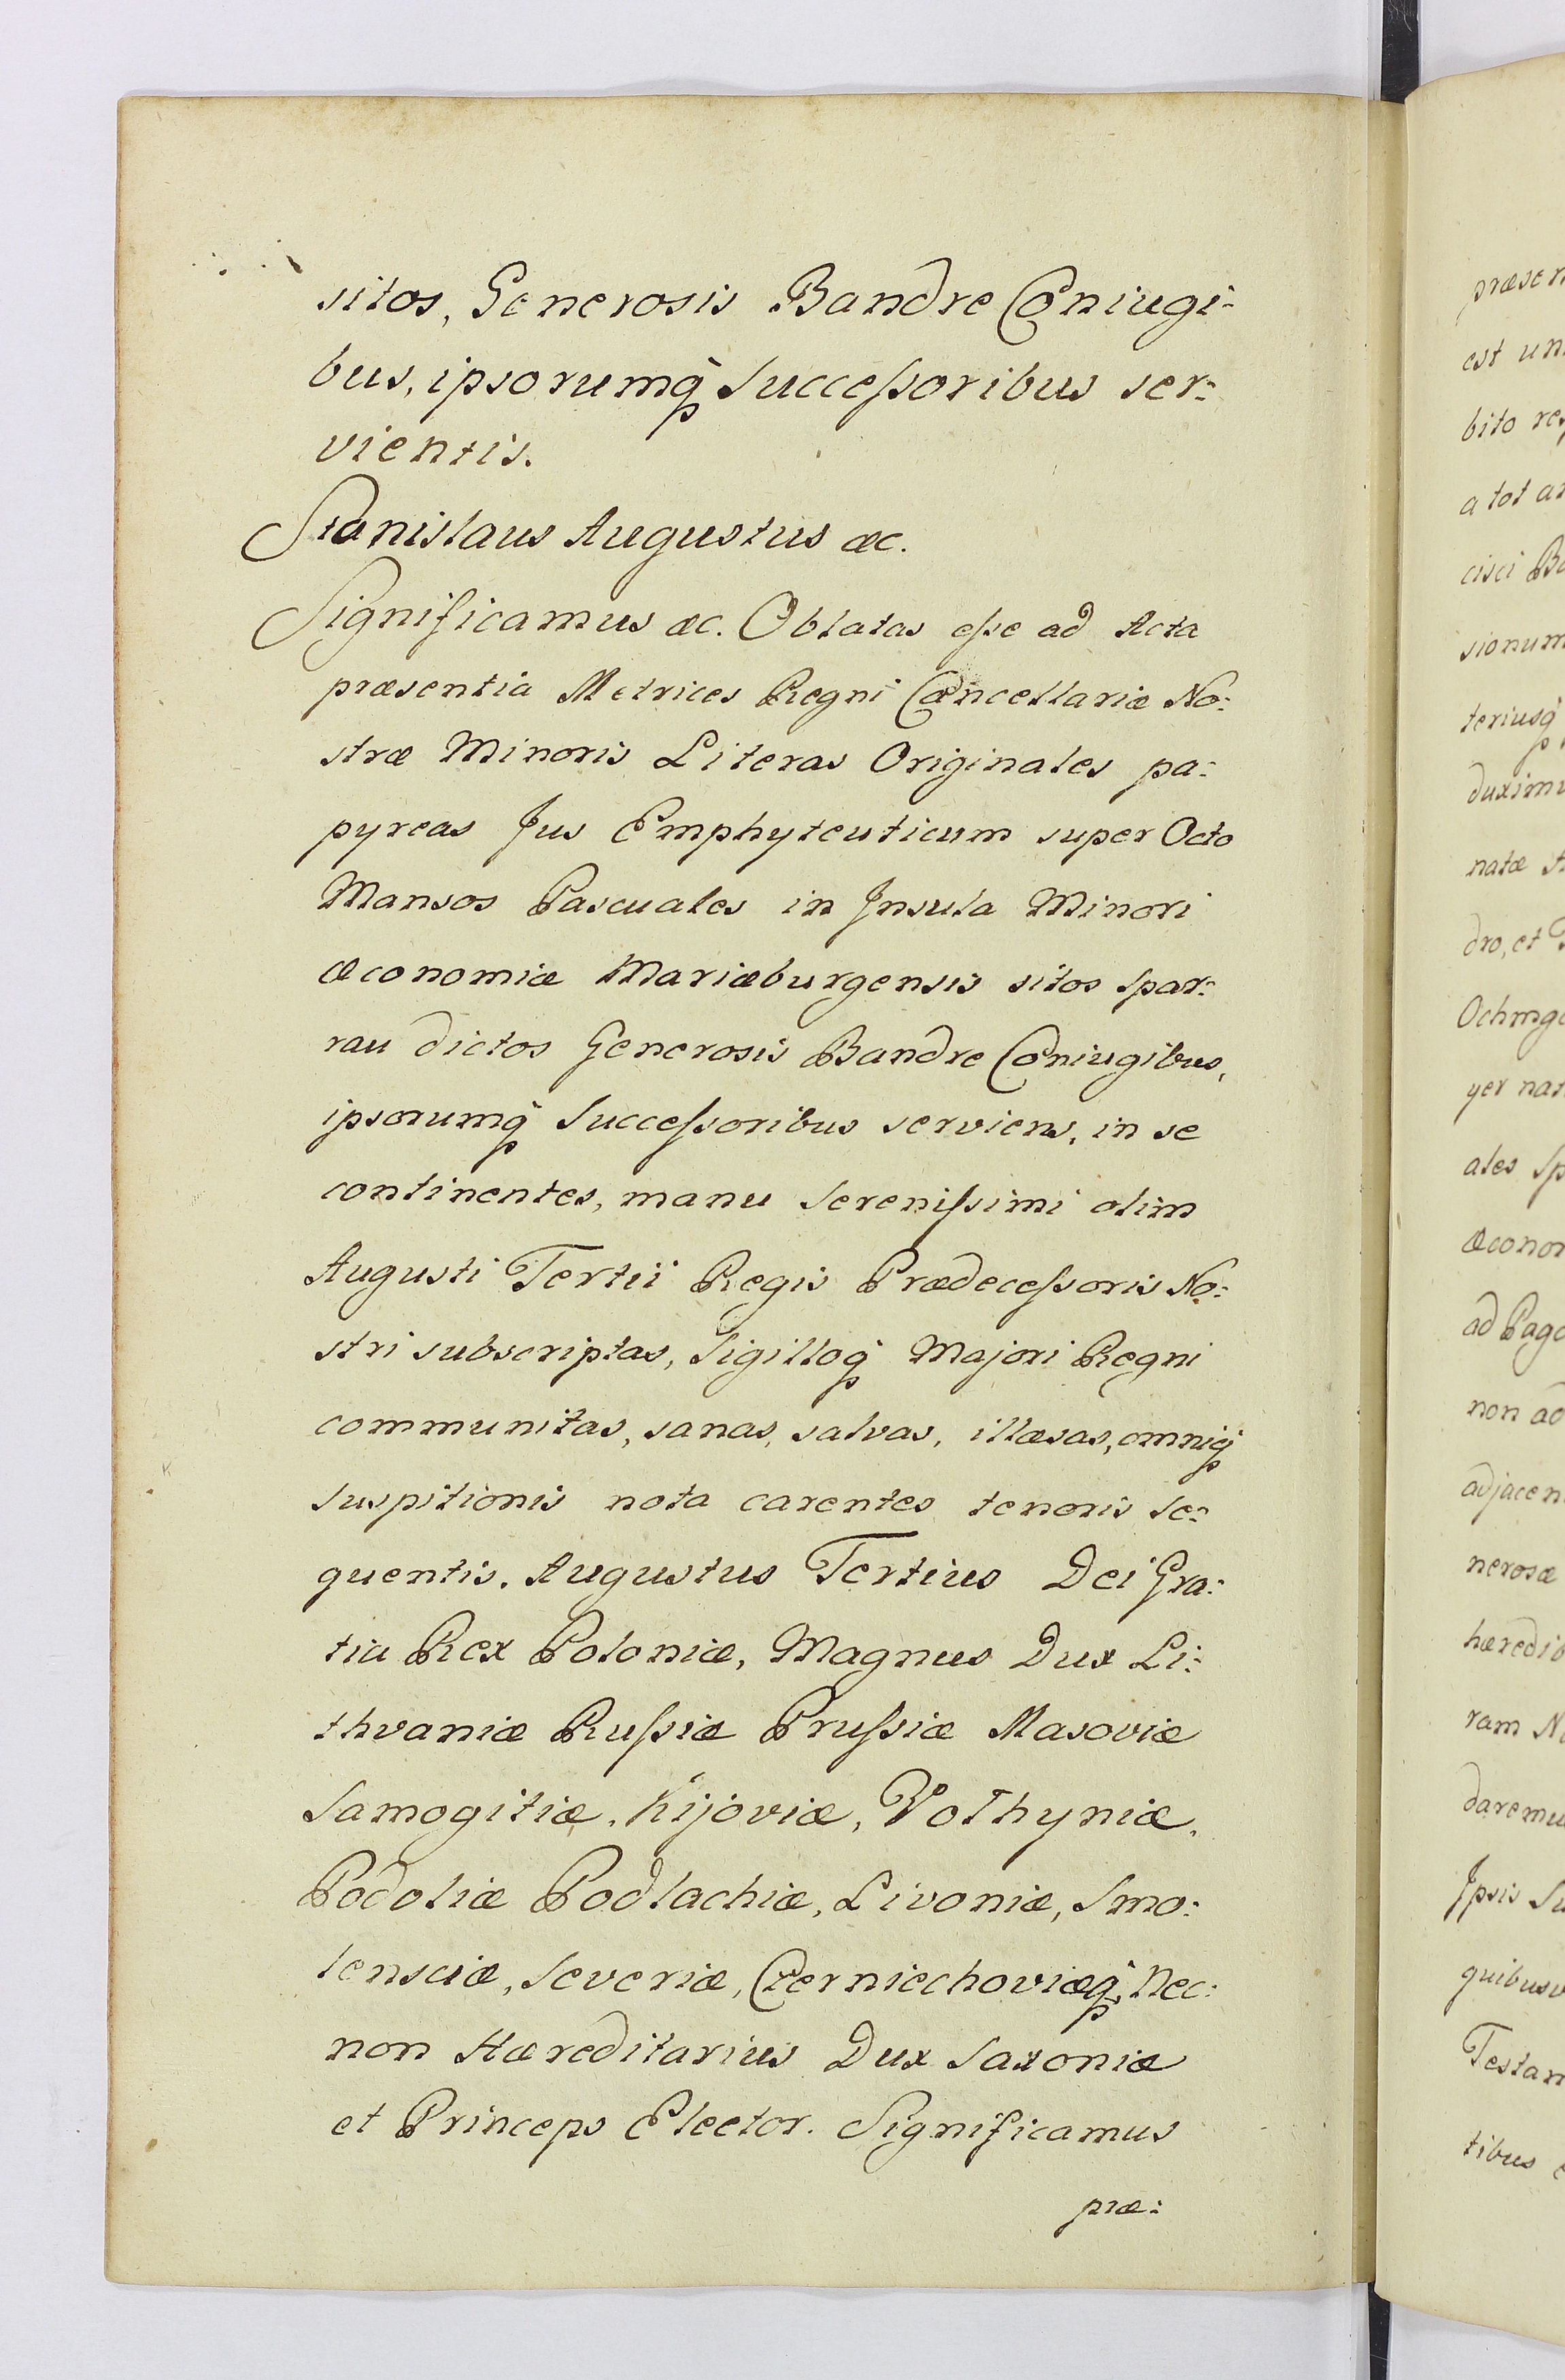 sitos, Generosis Bandre Coniugi-
bus, ipsorumq́ Successoribus ser:
vientis.
Stanislaus Augustus &c.
Significamus &c. Oblatas esse ad Acta
præsentia Metrices Regni Cancellariæ No:
stræ Minoris Literas Originales pa:
pyreas Jus Emphyteuticum super Octo
Mansos Pascuales in Jnsula Minori
Œconomiæ Mariæburgensis sitos Spar:
rau dictos Generosis Bandre Coniugibus,
ipsorumq́ Successoribus serviens, in se
continentes, manu Serenissimi olim
Augusti Tertii Regis Prædecessoris No:
stri subscriptas, Sigilloq́ Majori Regni
communitas, sanas, salvas, illæsas, omniq́
suspitionis nota carentes tenoris se:
quentis. Augustus Tertius Dei Gra:
tia Rex Poloniæ, Magnus Dux Li:
thvaniæ Russiæ Prussiæ Masoviæ
Samogitiæ, Kijoviæ, Volhyniæ,
Podoliæ Podlachiæ, Livoniæ, Smo:
lensciæ, Severiæ, Czerniechoviæq́, Nec:
non Hæreditarius Dux Saxoniæ
et Princeps Elector. Significamus
præ:
præsen
est un
bito res
a tot an
cisci Ba
sionum
teriusq́
duximu
natæ
dro, et
Ochmga
yer nat
ales Sp
Œconom
ad Pago
non ad
adjacen
nerosæ
hæredib
ram N
daremu
Jpsis Su
quibusv
Testam
tibus